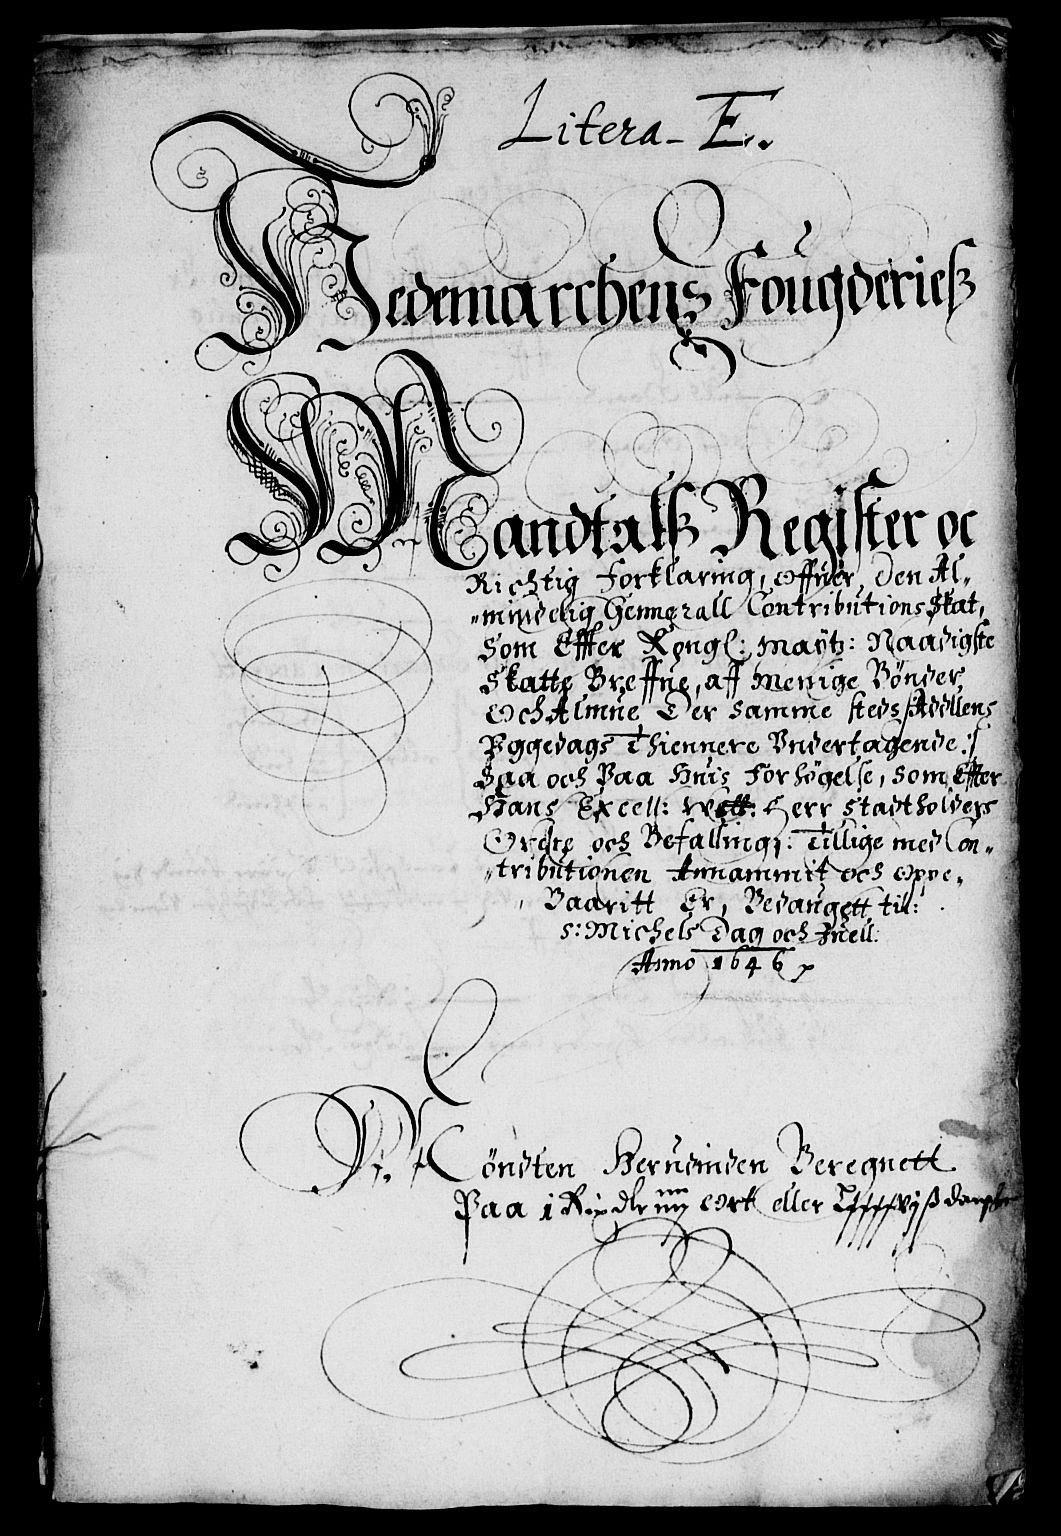 Litera - E.
Hedemarchens Fougderies
Mandtals Register oc
Richtig Forklaring, offuer, den Al„
„mindelig Gennerall Contributions Skat,
Som Effter Kongl: Maytz: Naadigste
Skatte Breffue, aff Menige Bönder,
och Almue, Der Samme steds /: Adellens
Vggedags Thiennere Vndertagende :/
Saa och Paa Huis Forhögelse, som Effter
Hans Excell: Welb: Herr Stadtholders
Ordre och Befalling, Tillige med Con„
„tributionen Annammit och oppe„
„Baaritt Er, Bedaugett till:
S: Michels Dag och Juell:
Anno 1646
Möndten Herudinden Beregnett
Paa 1 Rix dlr iiij ort eller